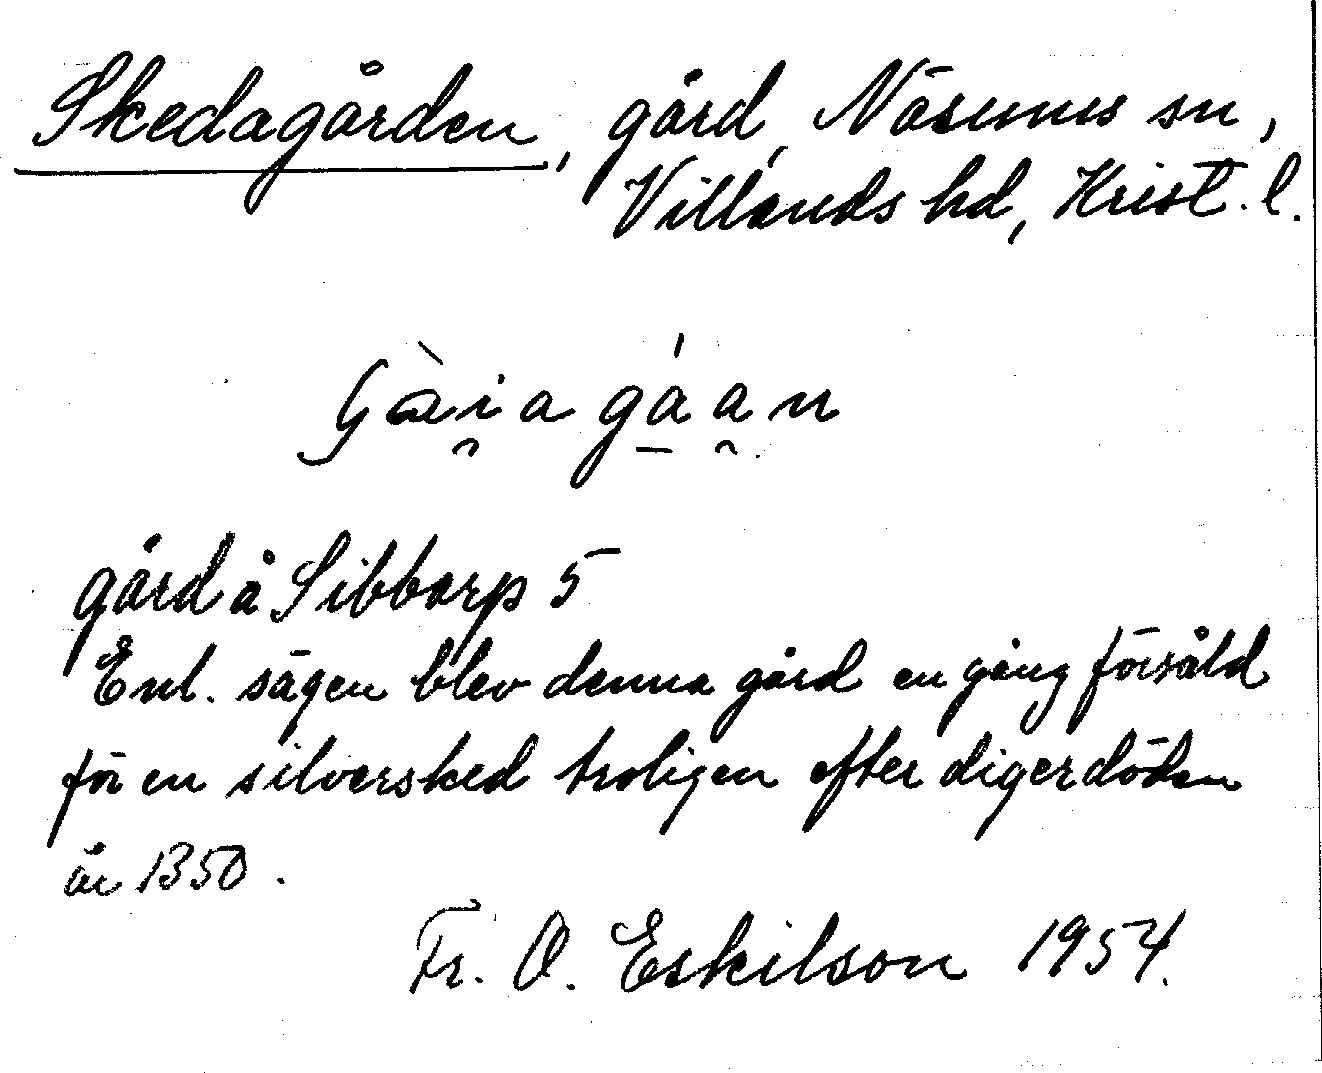 Skedagården, gård, Näsums sn,
Villands hd, Krist. l.
gård å Sibbarp 5
Enl. sägen blev denna gård en gång försåld
för en silversked troligen efter digerdöden
år 1350.
Fr. O. Eskilson 1954.